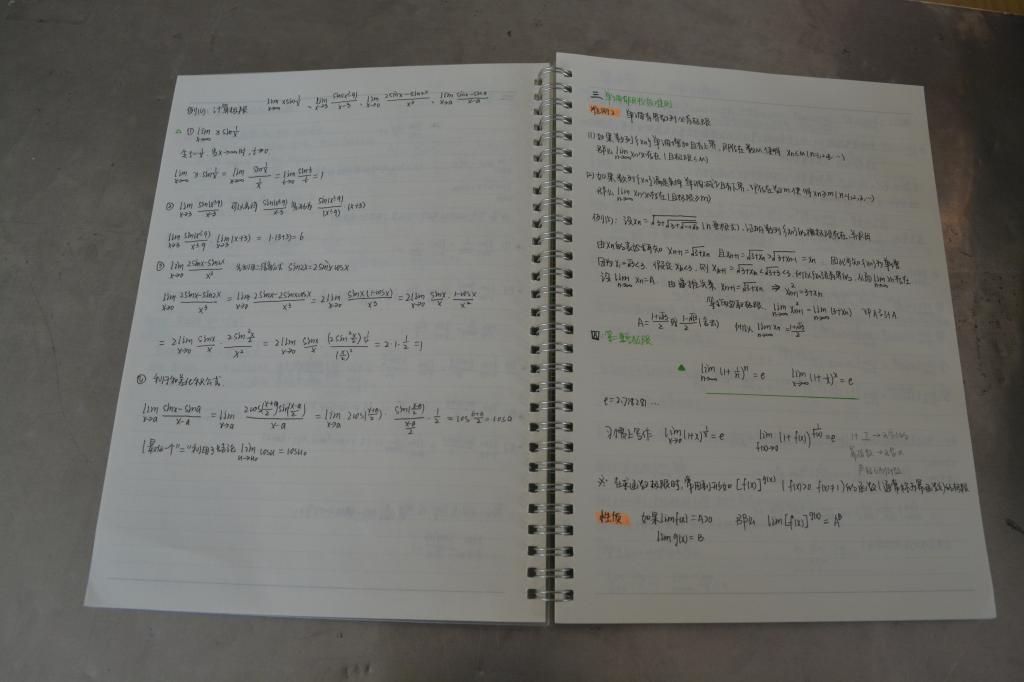 例(1): 计算极限 lim x→∞ xsin 1/x、lim x→3 sin(x²-9)/(x-3)、lim x→0 (2sinx-sin2x)/x³、lim x→a (sinx-sina)/(x-a)
① lim x→∞ x sin 1/x
令t=1/x, 当x→∞时, t→0
lim x→∞ x·sin 1/x = lim x→∞ sin(1/x)/(1/x) = lim t→0 sint/t = 1
② lim x→3 sin(x²-9)/(x-3) 可以将 sin(x²-9)/(x-3) 改为 sin(x²-9)/(x²-9) ·(x+3)
lim x→3 sin(x²-9)/(x²-9) · lim x→3 (x+3) = 1·(3+3) = 6
③ lim x→0 (2sinx-sin2x)/x³ sin2x=2sinxcosx
lim x→0 (2sinx-sin2x)/x³ = lim x→0 (2sinx-2sinxcosx)/x³ = 2lim x→0 sinx(1-cosx)/x³ = 2lim x→0 sinx/x · (1-cosx)/x²
= 2lim x→0 sinx/x · 2sin²(x/2)/x² = 2lim x→0 sinx/x · (2sin²(x/2))·1/4/(x/2)² = 2·1·1/2 = 1
利用和差化积公式.
lim x→a (sinx-sina)/(x-a) = lim x→a 2cos((x+a)/2)sin((x-a)/2)/(x-a) = lim x→a 2cos((x+a)/2) · sin((x-a)/2)/((x-a)/2) · 1/2 = cos (a+a)/2 = cosa
(最后一个"="利用了结论 lim u→u₀ cosu = cosu₀
三 单调有界收敛准则
准则2 单调有界数列必有极限
(1) 如果数列{xn}单调增加且有上界, 即存在数M, 使得 xn≤M (n=1,2,3,…)
那么 lim n→∞ xn 存在 (且极限≤M)
(2) 如果数列{xn} 单调减少且有下界, 即存在数m 使得 xn≥m (n=1,2,3,…)
那么 lim n→∞ xn 存在 (且极限≥m)
例(1): 设xn=√3+√3+√…√3 (n重根式), 证明数列{xn}的极限存在, 并求出
由xn的表达式可知 xn+1=√3+xn 且 xn+1=√3+xn>√3+xn-1=xn, 因此可知{xn}为单增
因为x₁=√3<3, 假设 xk<3, 则 xk+1=√3+xk<√3+3<3, 所以{xn}是有界的, 从而 lim n→∞ xn存在
设 lim n→∞ xn=A. 由递推关系 xn+1=√3+xn ⇒ x²n+1=3+xn
等式两边取极限, lim n→∞ x²n+1 = lim n→∞ (3+xn) 即 A²=3+A
A= (1+√13)/2 或 (1-√13)/2 (舍去) 所以 lim n→∞ xn = (1+√13)/2
四 第二重要极限
lim n→∞ (1+1/n)ⁿ = e lim x→∞ (1+1/x)ˣ = e
e=2.71828…
习惯上写作 lim x→0 (1+x)^(1/x) = e lim f(x)→0 (1+f(x))^(1/f(x)) = e
※ 在求函数极限时, 常用到形如 [f(x)]^g(x) (f(x)>0 f(x)≠1) 的函数 (通常称为幂指函数) 的极限
性质 如果limf(x)=A>0 那么 lim[f(x)]^g(x) = A^B
limg(x)=B